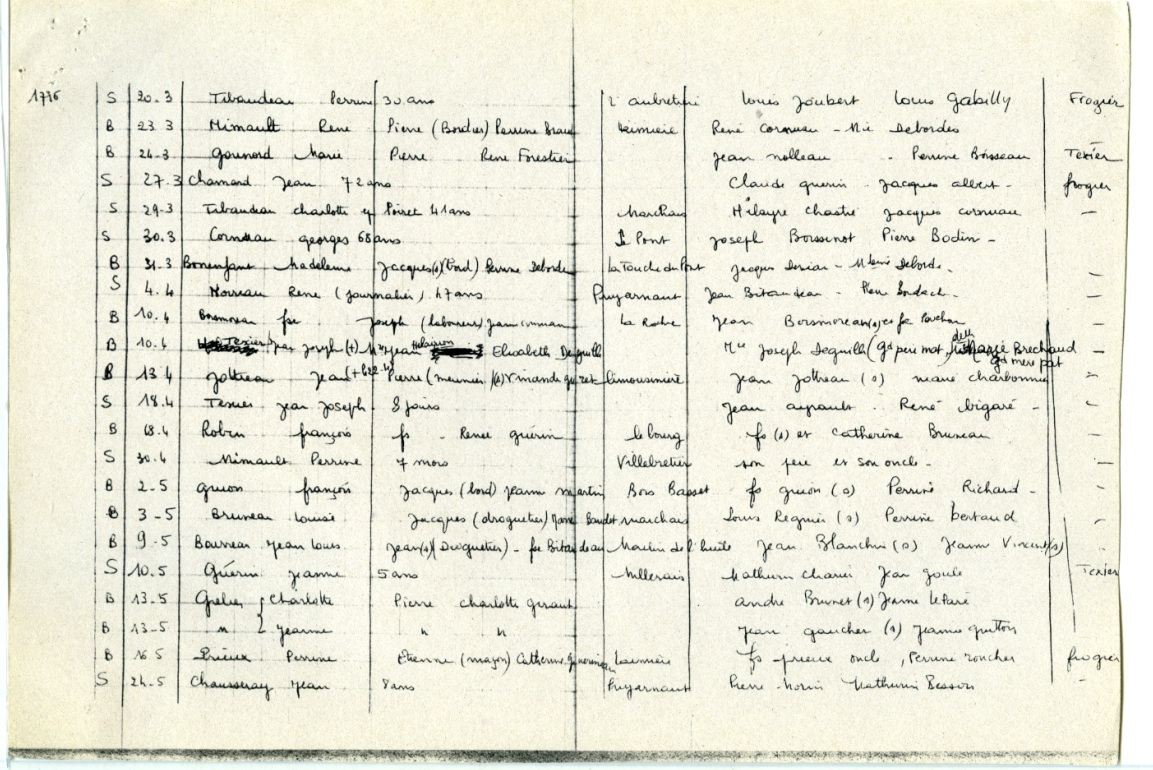 1776 S 20.3 Tibaudeau Perrine 30 ans l'aubretière Louis Joubert Louis Gabilly Frogier
B 23.3 Mimault René Pierre (Bordier) Perrine René Corneau - Mie Debordes
B 24.3 Gounord Marie Pierre Rene Forestier Jean Nolleau - Perrine Boisseau Texier
S 27.3 Chamard Jean 72 ans Claude Guerin - Jacques Albert - frogier
S 29.3 Tibaudeau Charlotte ep Poiret 41 ans Marchais Hilayre Chastre Jacques Corneau -
S 30.3 Corneau Georges 68 ans Le Pont Joseph Boissenot Pierre Bodin -
B 31.3 Bonenfant Madeleine Jacques (s) (bord) Perrine Deborde La Touche du Pont Jacques - Deborde - -
S 4.4 Moreau René (journalier) 47 ans Puyarnaut Jean Bitaudeau - Pierre -
B 10.4 Boismoreau fse Joseph (laboureur) Jeanne La Roche Jean Boismoreau (s) et fse -
B 10.4 Texier Jean Joseph (+) Me Jean Hilairion Elisabeth Deguille Me Joseph Deguille (gd père mat), dlle Brechaud gd mère pat
B 13.4 Jottreau Jean (+ le 22.4) Pierre (meunier) (s) limousinière Jean Jottreau (s) Marie Charbonnier -
S 18.4 Texier Jean Joseph 8 jours Jean Ayrault - René Bigaré - -
B 18.4 Robin François fs - Renée Guérin le bourg fs (s) et Catherine Bruneau -
S 30.4 Mimault Perrine 7 mois Villebretier son père et son oncle - -
B 2-5 Guion François Jacques (bord) Jeanne Martin Bois Basset fs Guion (s) Perrine Richard - -
B 3-5 Bruneau Louise Jacques (droguetier) Jeanne Baudet Marchais Louis Regnier (s) Perrine Bertaud -
B 9-5 Bourreau Jean Louis Jean (s) (Droguetier) - fse Bitaudeau Moulin de l'huile Jean Blanchin (s) Jeanne Vincent (s)
S 10.5 Guérin Jeanne 5 ans Millerais Mathurin Jean Goulé Texier
B 13.5 Grelier { Charlotte Pierre Charlotte Geraut André Brunet (s) Jeanne
B 13-5 " { Jeanne " " Jean Gaucher (s) Jeanne Guitton
B 16 5 Prieux Perrine Etienne (maçon) Catherine fs Prieux oncle, Perrine Roncher frogier
S 24-5 Chausseray Jean 8 ans Puyarnaut Pierre Morin Mathurin Besson -